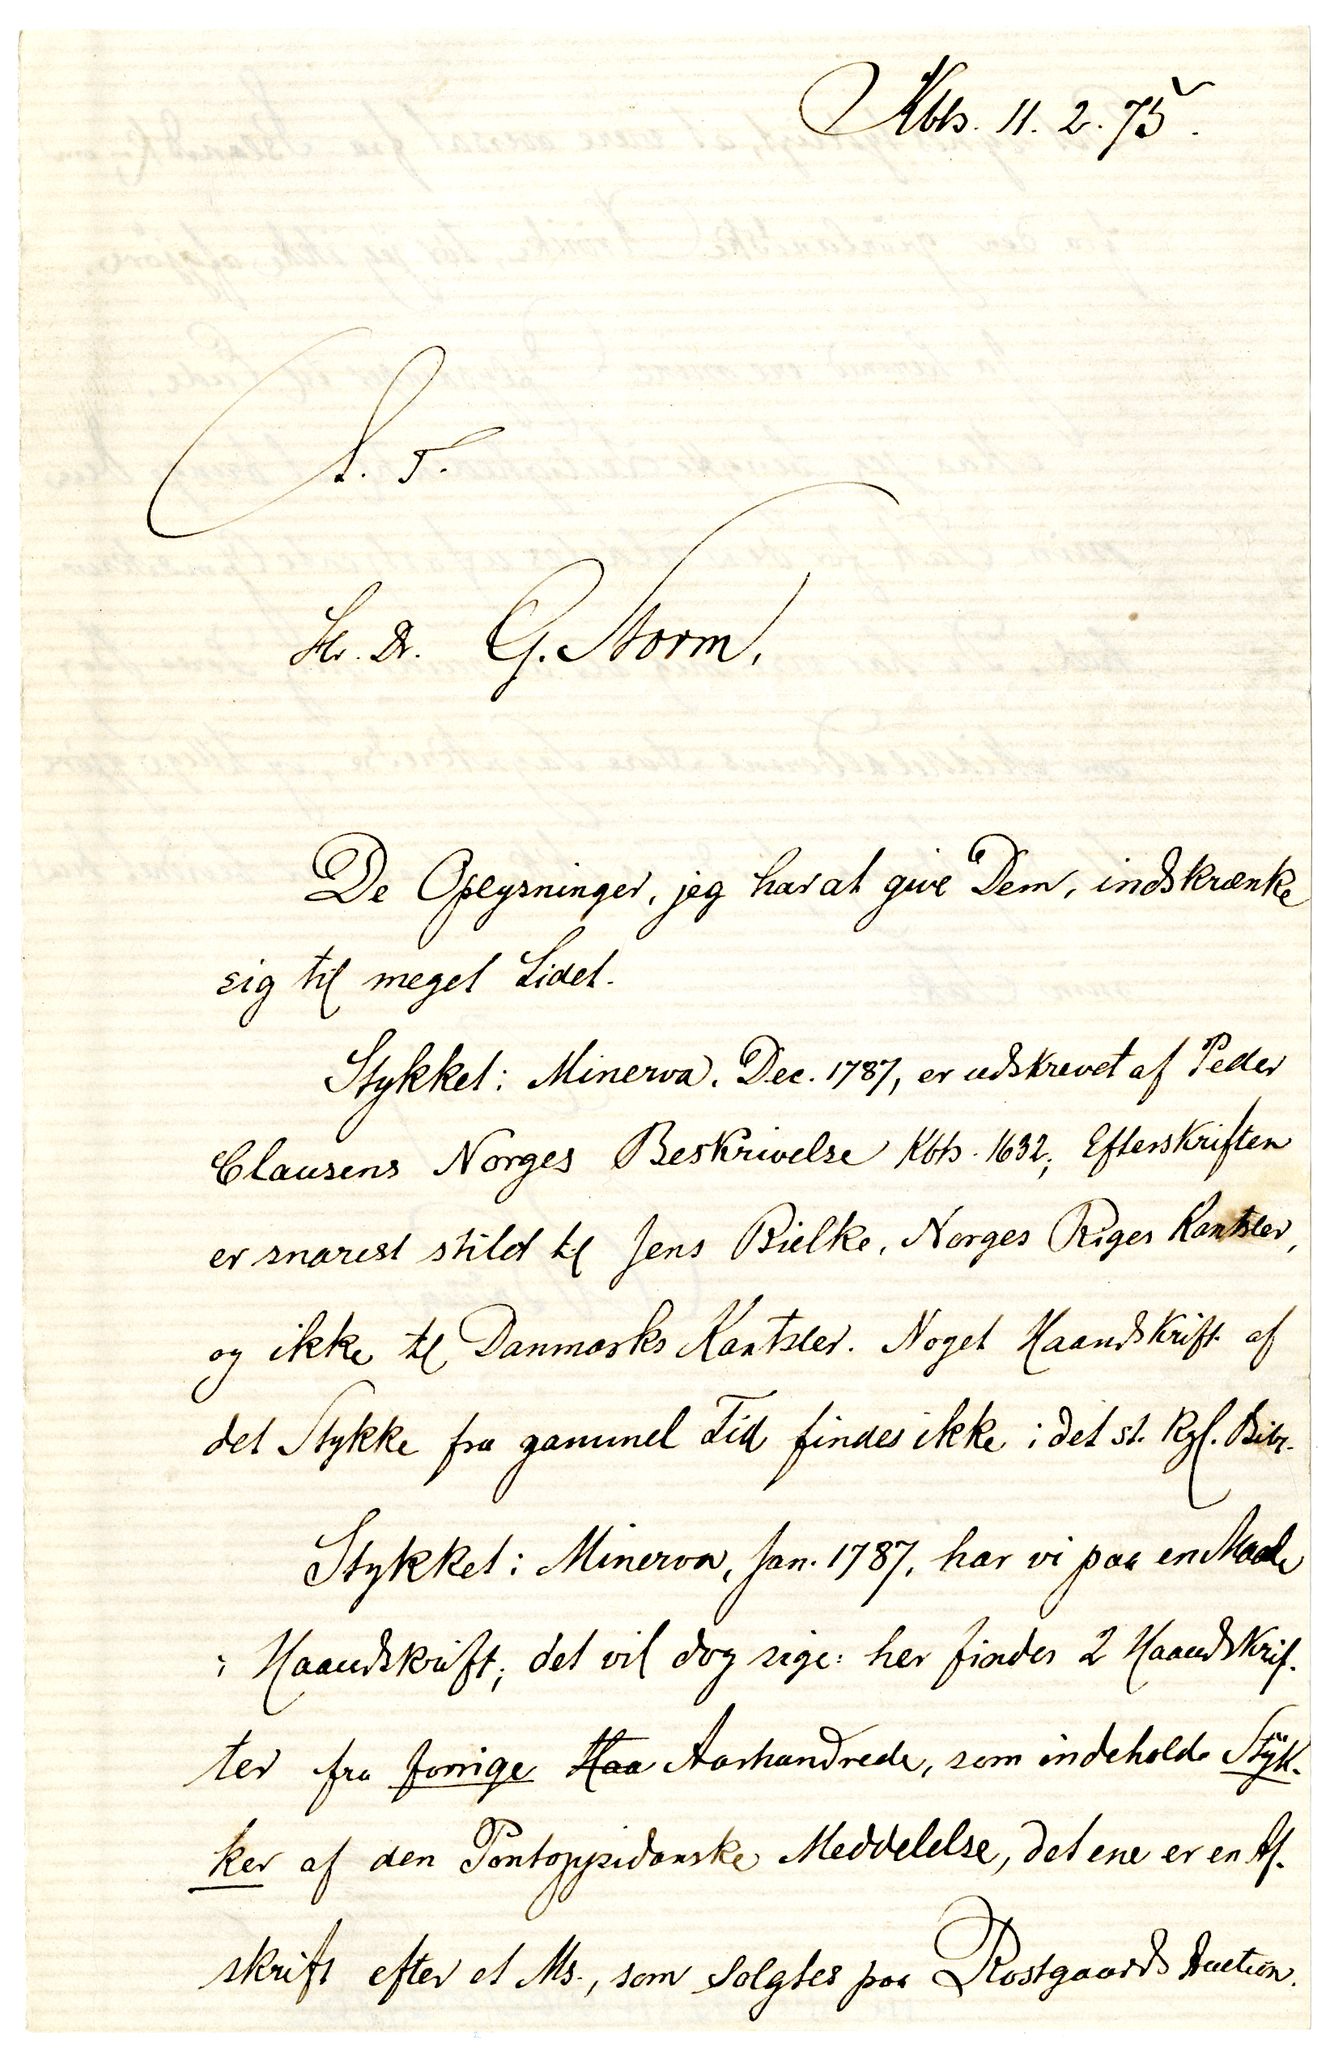 Kbh. 11. 2. 75.
S. T.
Hr. Dr. G. Storm,
De Oplysninger, jeg har at give Dem, indskrænke
sig til meget Lidet.
Stykket i Minerva, Dec. 1787, er udskrevet af Peder
Clausens Norges Beskrivelse Kbh. 1632; Efterskriften
er snarest stilet til Jens Bielke, Norges Riges Kantsler,
og ikke til Danmarks Kantsler. Noget Haandskrift af
det Stykke fra gammel Tid findes ikke i det st. Kgl. Bibl.
Stykket i Minerva, Jan. 1787, har vi paa en Maade
i Haandskrift; det vil dog sige: her findes 2 Haandskrif-
ter fra forrige Haa Aarhundrede, som indeholde Styk-
ker af den Pontoppidanske Meddelelse, det ene er en Af-
skrift efter et Ms., som solgtes paa Rostgaards Auction.